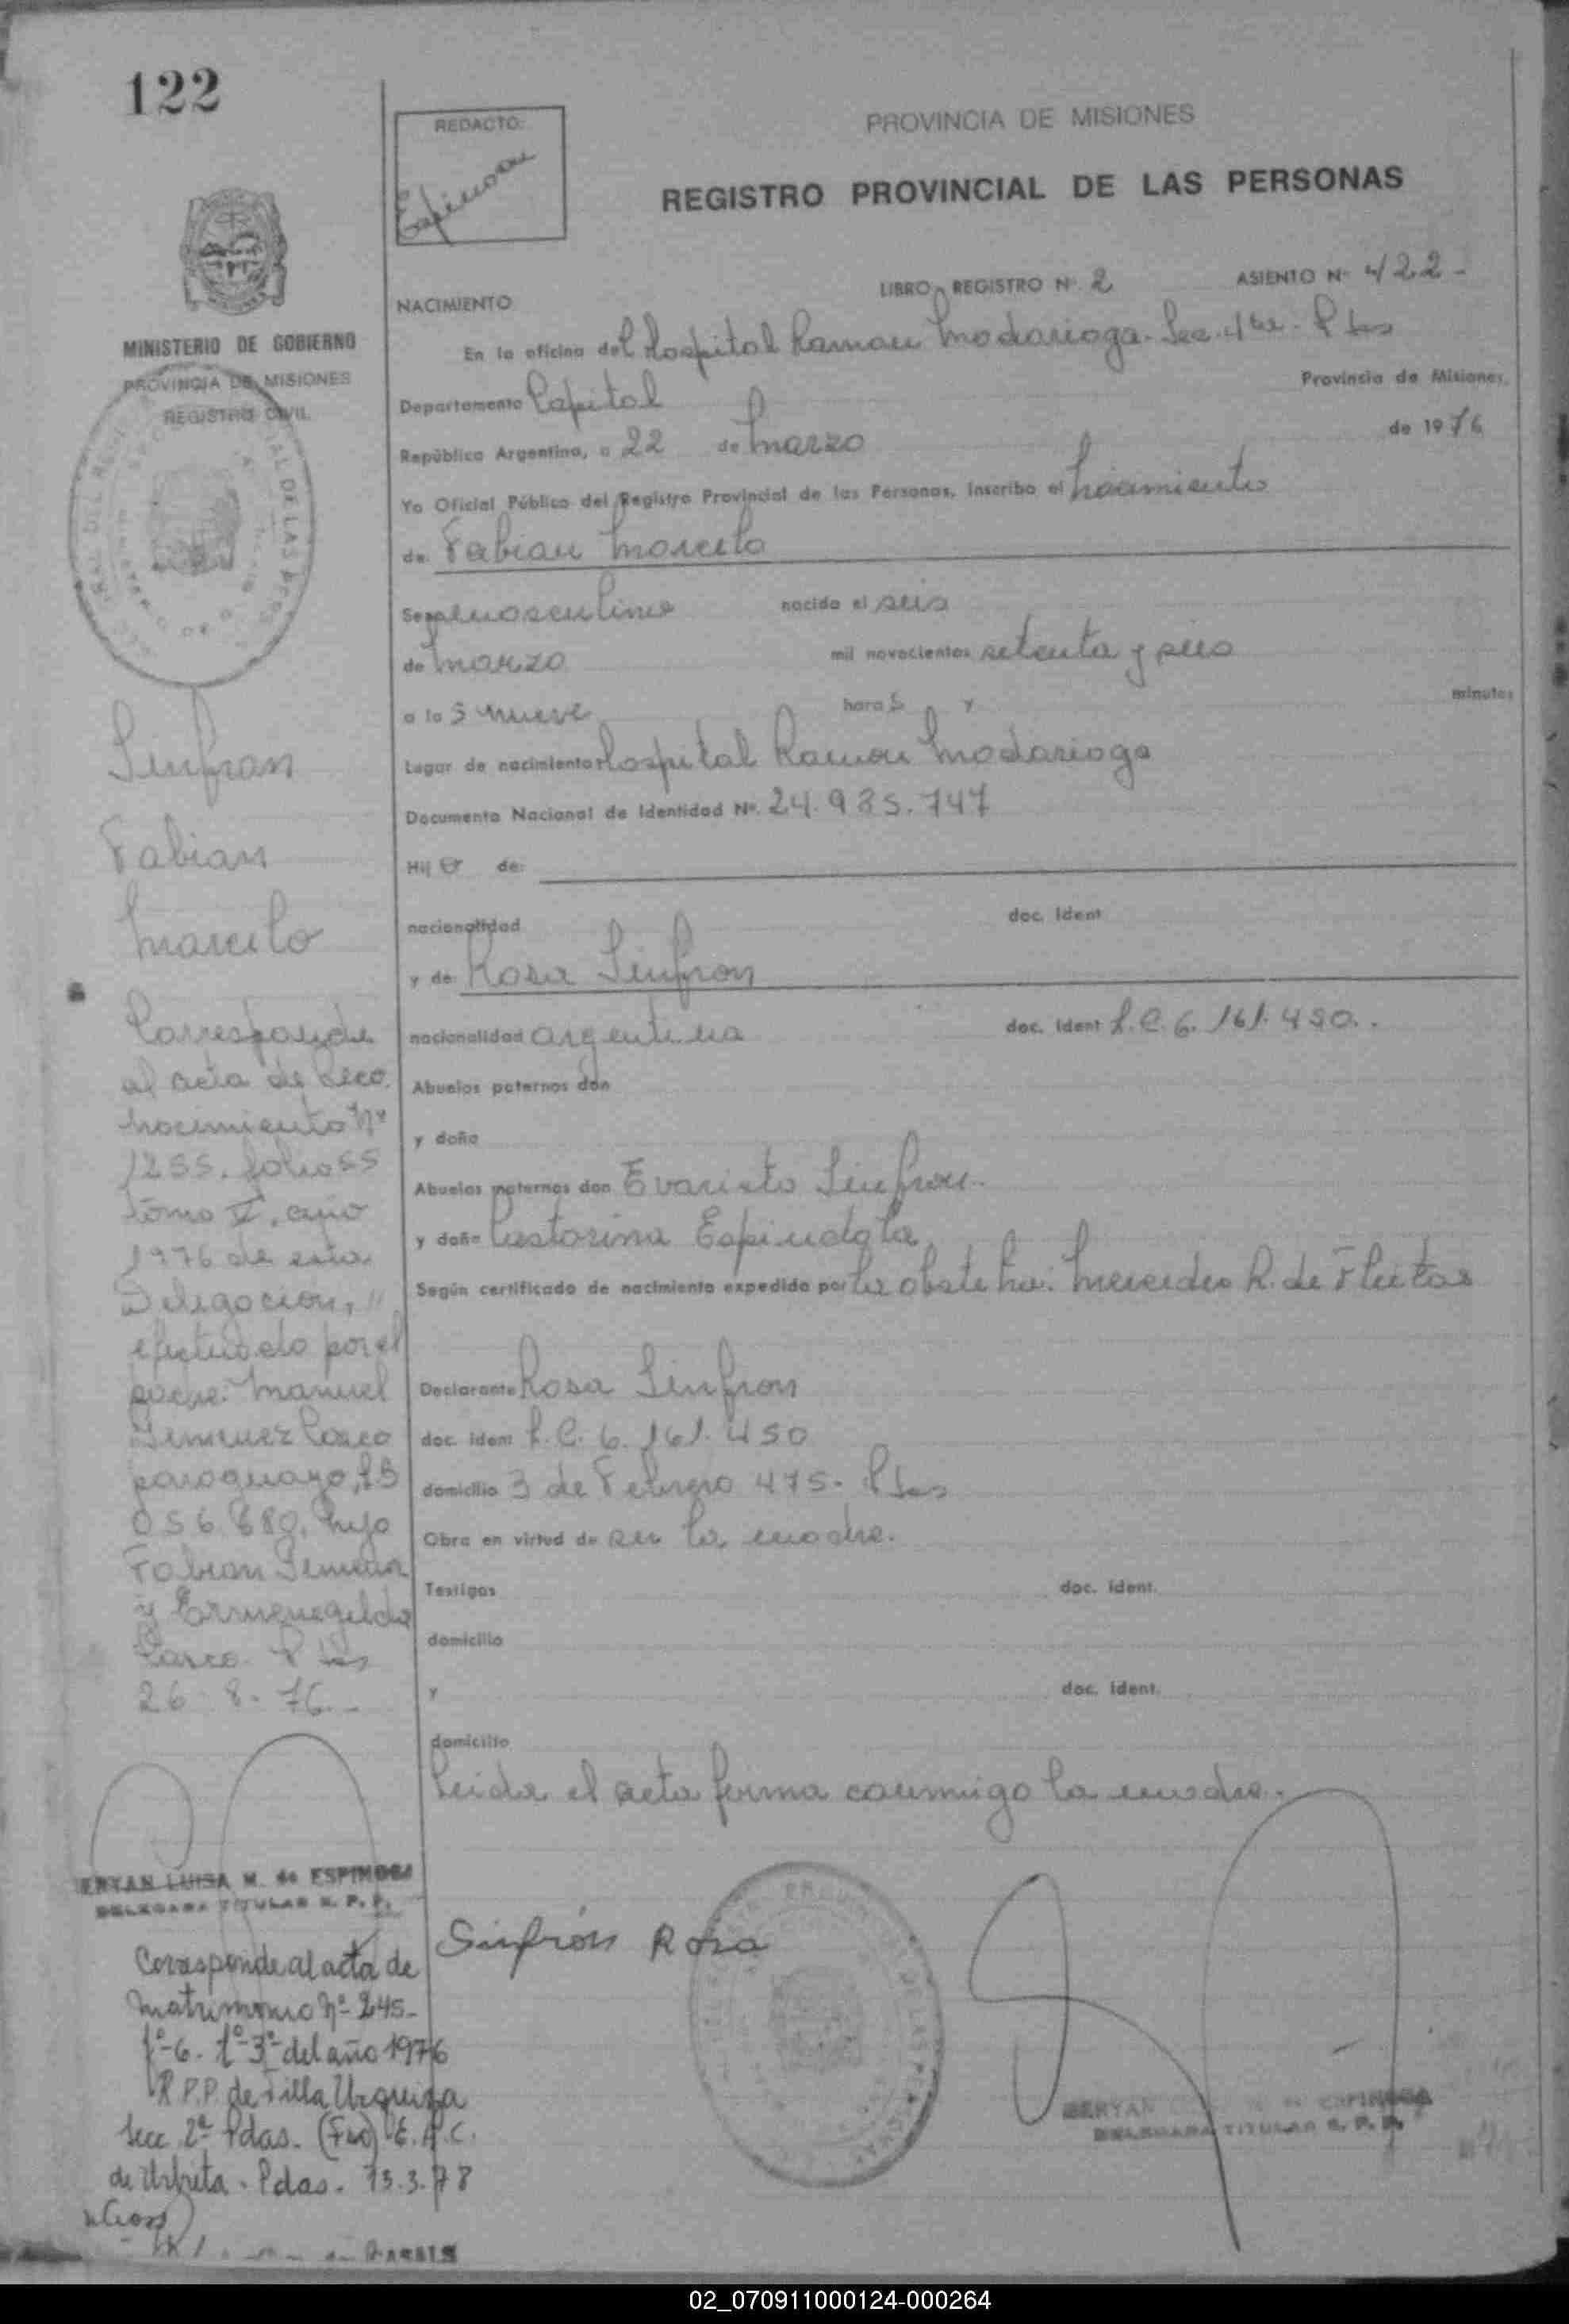 122
REDACTO:
PROVINCIA DE MISIONES
REGISTRO PROVINCIAL DE LAS PERSONAS
LIBRO REGISTRO Nº. 2 ASIENTO Nº 422-
NACIMIENTO
MINISTERIO DE GOBIERNO
PROVINCIA DE MISIONES
REGISTRO CIVIL
En la oficina del Hospital Ramon Madariaga. Sec. 4ta. Pdas
Departamento Capital Provincia de Misiones,
República Argentina, a 22 de Marzo de 1976
Yo Oficial Público del Registro Provincial de las Personas, inscribo el nacimiento
de: Fabian Marcelo
Sexo masculino nacido el seis
de marzo mil novecientos setenta y seis
a las nueve horas y minutos
Lugar de nacimiento Hospital Ramon Madariaga
Documento Nacional de Identidad Nº. 24.985.747
Hijo de:
nacionalidad doc. Ident
y de: Rosa Sinfron
nacionalidad argentina doc. Ident L.C. 6.161.450.
Abuelos paternos don
y doña
Abuelos maternos don Evaristo Sinfron.
y doña Castorina Espindola
Según certificado de nacimiento expedido por la obstetra: Mercedes R. de Fleitas
Declarante Rosa Sinfron
doc. ident L.C. 6.161.450
domicilio 3 de Febrero 475. Pdas
Obra en virtud de ser la madre.
Testigos doc. ident.
domicilio
y doc. ident.
domicilio
Leida el acta firma conmigo la madre.
Sinfrón Rosa
Sinfron
Fabian
Marcelo
Corresponde
al acta de Reco
nocimiento Nº
1255. folio 55
tomo V, año
1976 de esta
Delegacion, //
efectuado por el
padre: Manuel
Gimenez Casco
paraguayo,
056.680. hijo
Fabian Gimenez
y Ermenegilda
Casco. Pdas
26-8-76.-
LUISA M. de ESPINOSA
DELEGADA TITULAR R. P. P.
Corresponde al acta de
matrimonio Nº 245-
fº-6. tº-3º del año 1976
R.P.P. de Villa Urquiza
Secc. 2ª Pdas.
de Urbieta. Pdas. 13.3.78
de ESPINOSA
DELEGADA TITULAR R. P. P.
02_070911000124-000264